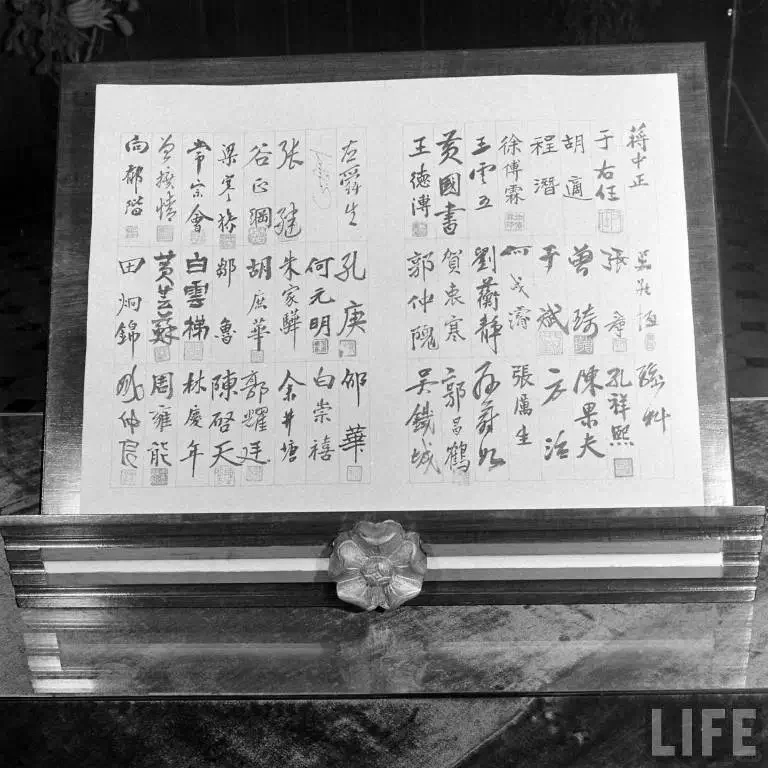 蔣中正 吳敬恆
于右任 張 孔祥熙
胡適 曾琦 陳果夫
程潛 于斌 方治
徐傅霖 何成濬 張厲生
王雲五 劉蘅靜
黃國書 賀衷寒 郭昌鶴
王德溥 郭仲隗 吳鐵城
左舜生 孔庚 邵華
何元明 白崇禧
張繼 朱家驊 余井塘
谷正綱 胡庶華 郭耀廷
梁寒操 鄒魯 陳啓天
常宗會 白雲梯 林慶年
曾擴情 黃芸蘇 周雍能
向郁階 田炯錦
LIFE